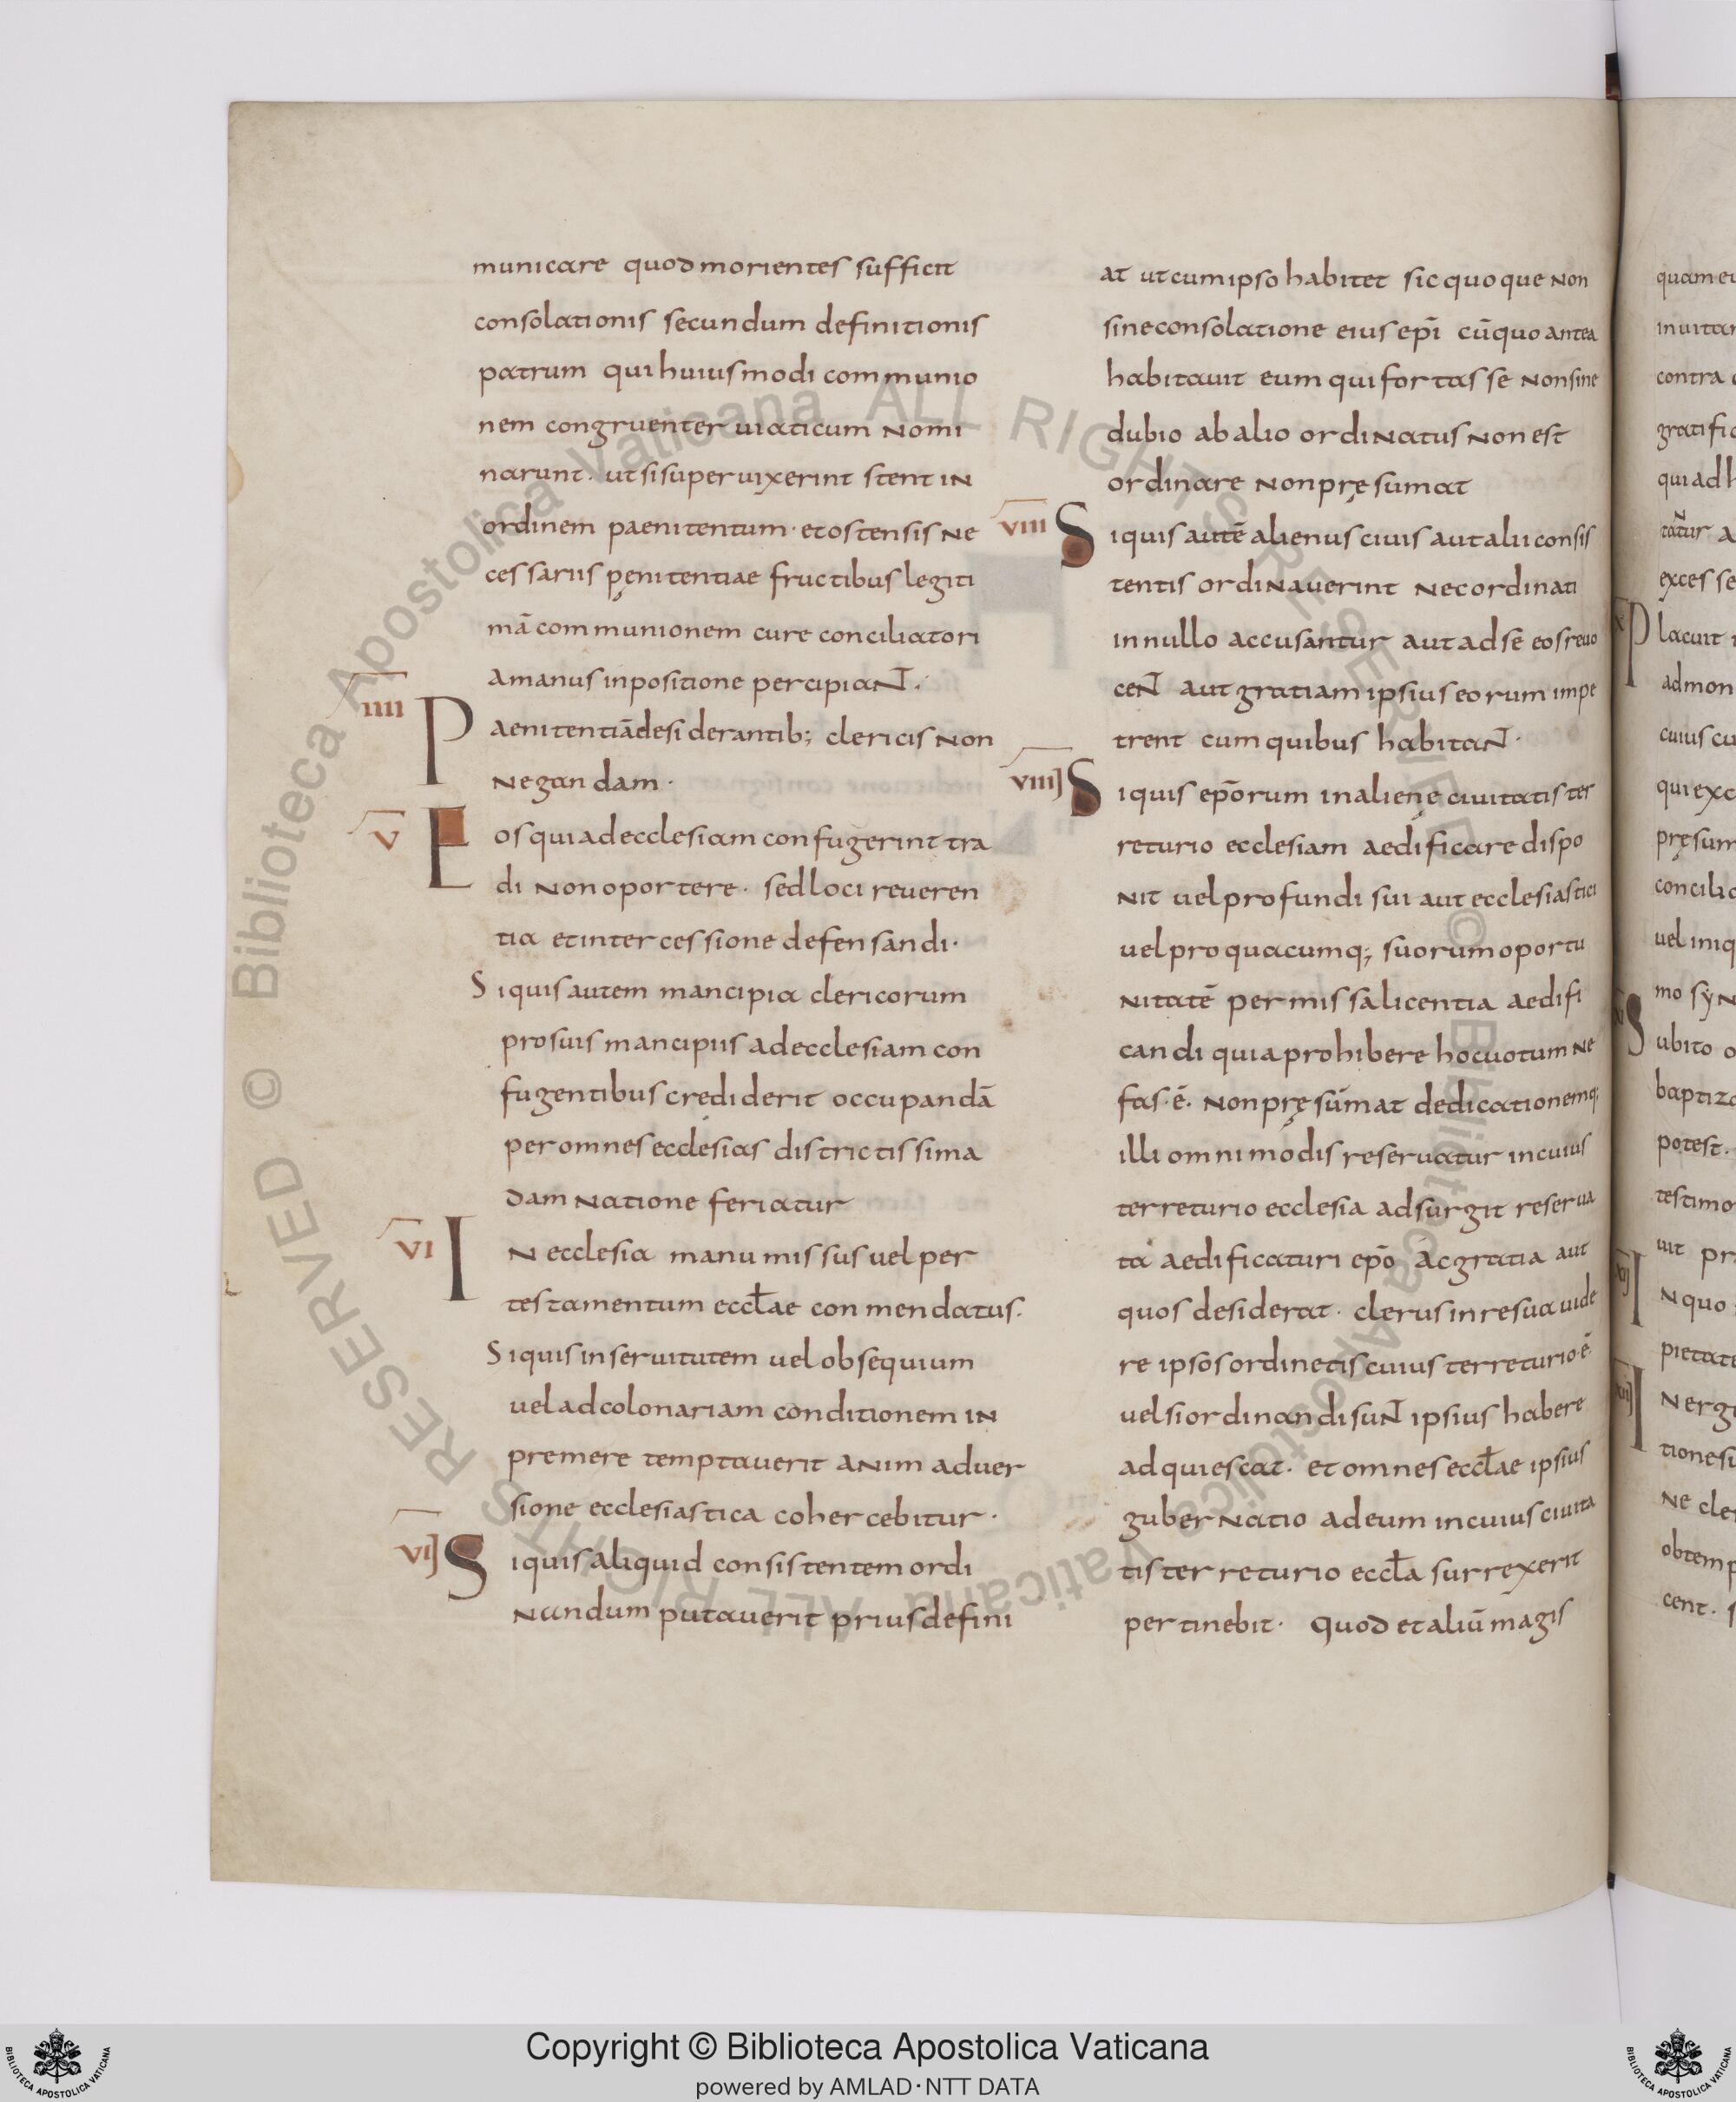 municare quod morientes sufficit
consolationis secundum definitionis
patrum qui huiusmodi communio
nem congruenter uiaticum nomi
narunt. ut si superuixerint stent in
ordinem paenitentum· et ostensis ne
cessariis pęnitentiae fructibus legiti
mā communionem cure conciliatori
a manus inpositione percipiaNT.
IIII Paenitentiā desiderantib; clericis non
negandam·
V Eos qui ad ecclesiam confugerint tra
di non oportere· sed loci reueren
tia et intercessione defensandi·
Si quis autem mancipia clericorum
pro suis mancipiis ad ecclesiam con
fugentibus crediderit occupandā
per omnes ecclesias districtissima
damnatione feriatur
VI In ecclesia manumissus uel per
testamentum eccƚae conmendatus.
Si quis in seruitutem uel obsequium
uel ad colonariam conditionem in
premere temptauerit anim aduer
sione ecclesiastica cohercebitur·
VII Si quis aliquid consistentem ordi
nandum putauerit prius defini
at ut cum ipso habitet sic quoque non
sine consolatione eius ep̄i cū quo antea
habitauit eum qui fortasse non sine
dubio ab alio ordinatus non est
ordinare non pręsumat
VIII Si quis autē alienus ciuis aut alii consis
tentis ordinauerint nec ordinati
in nullo accusantur aut ad se eos reuo
ceNT aut gratiam ipsius eorum impe
trent cum quibus habitaNT·
VIIII Si quis ep̄orum in alienę ciuitatis ter
returio ecclesiam aedificare dispo
nit uel pro fundi sui aut ecclesiastici
uel pro quacumq; suorum oportu
nitatē permissa licentia aedifi
candi quia prohibere hoc uotum ne
fas·ē· non pręsumat dedicationemq;
illi omnimodis reseruatur in cuius
terreturio ecclesia adsurgit reserua
ta aedificaturi ep̄o Ac gratia aut
quos desiderat· clerus in re sua uide
re ipsos ordinetis cuius terreturio·ē·
uel si ordinandi suNT ipsius habere
adquiescat· et omnes eccƚae ipsius
gubernatio ad eum in cuius ciuita
tis terreturio eccƚa surrexerit
pertinebit· Quod et aliū magis
quam eu
inuitar
contra
gratific
qui ad h
exces se
Placuit
admon
cuius cu
qui exc
pręsum
concilic
uel iniq
mo syn
Subito o
baptiza
potest·
testimo
uit pr
In quo
pietate
In ergo
tionesi
ne cler
obtemp
cent· s
Copyright © Biblioteca Apostolica Vaticana
powered by AMLAD·NTT DATA
BIBLIOTECA APOSTOLICA VATICANA
BIBLIOTECA APOSTOLICA VATICANA
© Biblioteca Apostolica Vaticana ALL RIGHTS RESERVED © Biblioteca Apostolica Vaticana ALL RIGHTS RESERVED